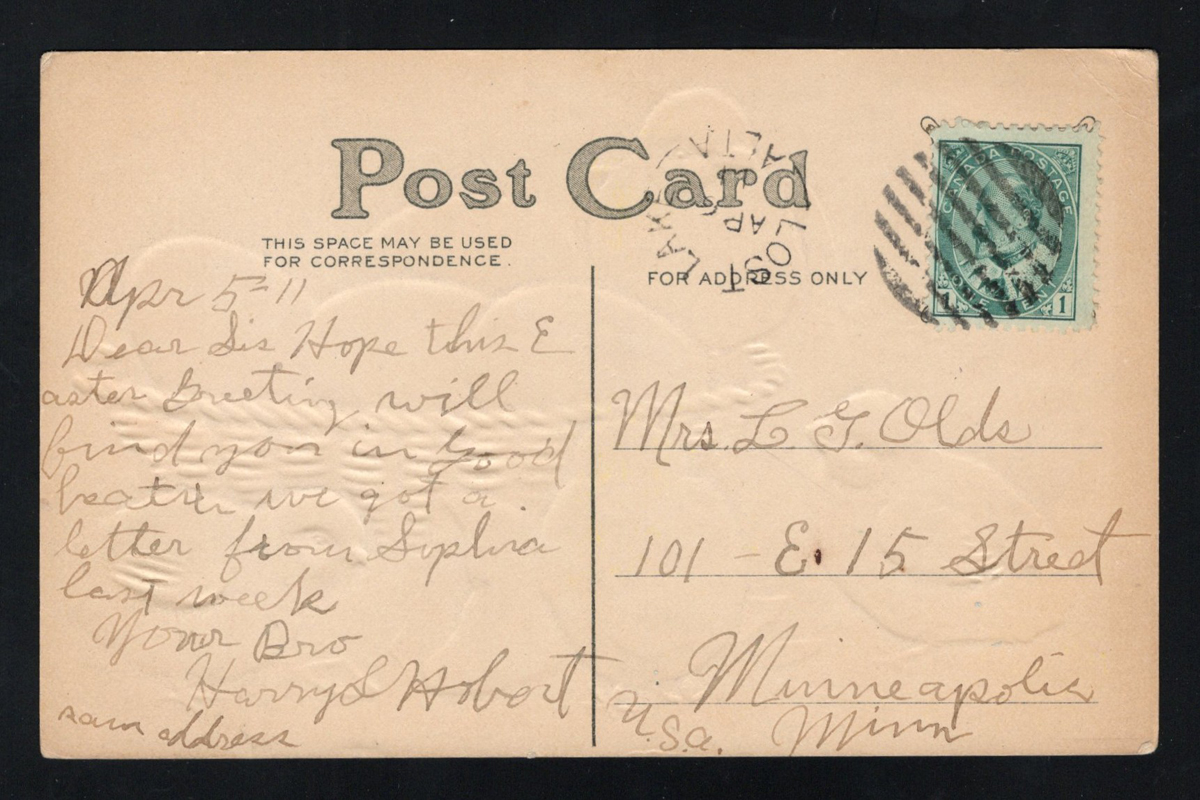 Post Card
THIS SPACE MAY BE USED
FOR CORRESPONDENCE.
FOR ADDRESS ONLY
LOST LAKE
ALTA
AP
CANADA POSTAGE
ONE CENT
1 1
Apr 5-11
Dear Sis Hope this E
aster Greeting will
find you in Good
heath we got a
letter from
last week
Your Bro
Harry S Hobart
sam address
Mrs. L G. Olds
101 - E. 15 Street
Minneapolis
Minn
U.S.A.